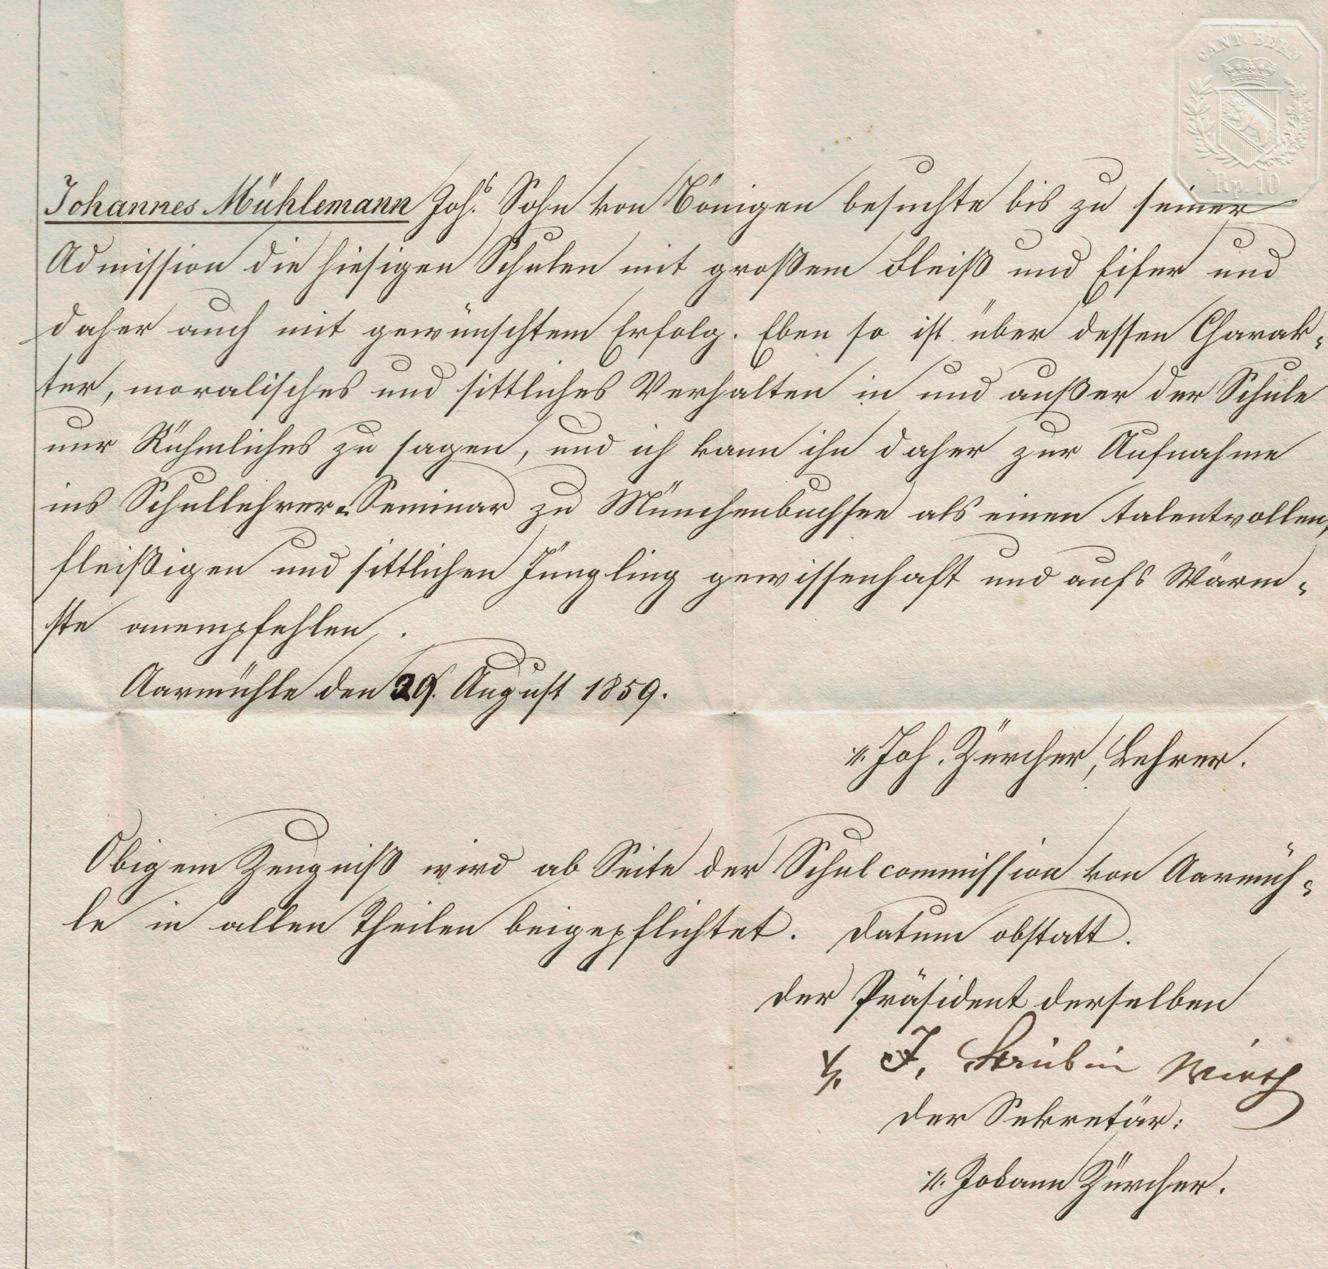 CANT. BERN
Rp. 10
Johannes Mühlemann Johs. Sohn von Bönigen besuchte bis zu seiner
Admission die hiesigen Schulen mit großem Fleiß und Eifer und
daher auch mit gewünschtem Erfolg. Eben so ist über dessen Charak-
ter, moralisches und sittliches Verhalten in und außer der Schule
nur Rühmliches zu sagen, und ich kann ihn daher zur Aufnahme
ins Schullehrer-Seminar zu Münchenbuchsee als einen talentvollen,
fleißigen und sittlichen Jüngling gewissenhaft und aufs Wärm-
ste anempfehlen.
Aarmühle den 29. August 1859.
Joh. Zürcher, Lehrer.
Obigem Zeugniß wird ab Seite der Schulcommission von Aarmüh-
le in allen Theilen beigepflichtet. Datum obstatt.
Der Präsident derselben
J. Strübin Wirth
Der Sekretär:
Johann Zürcher.